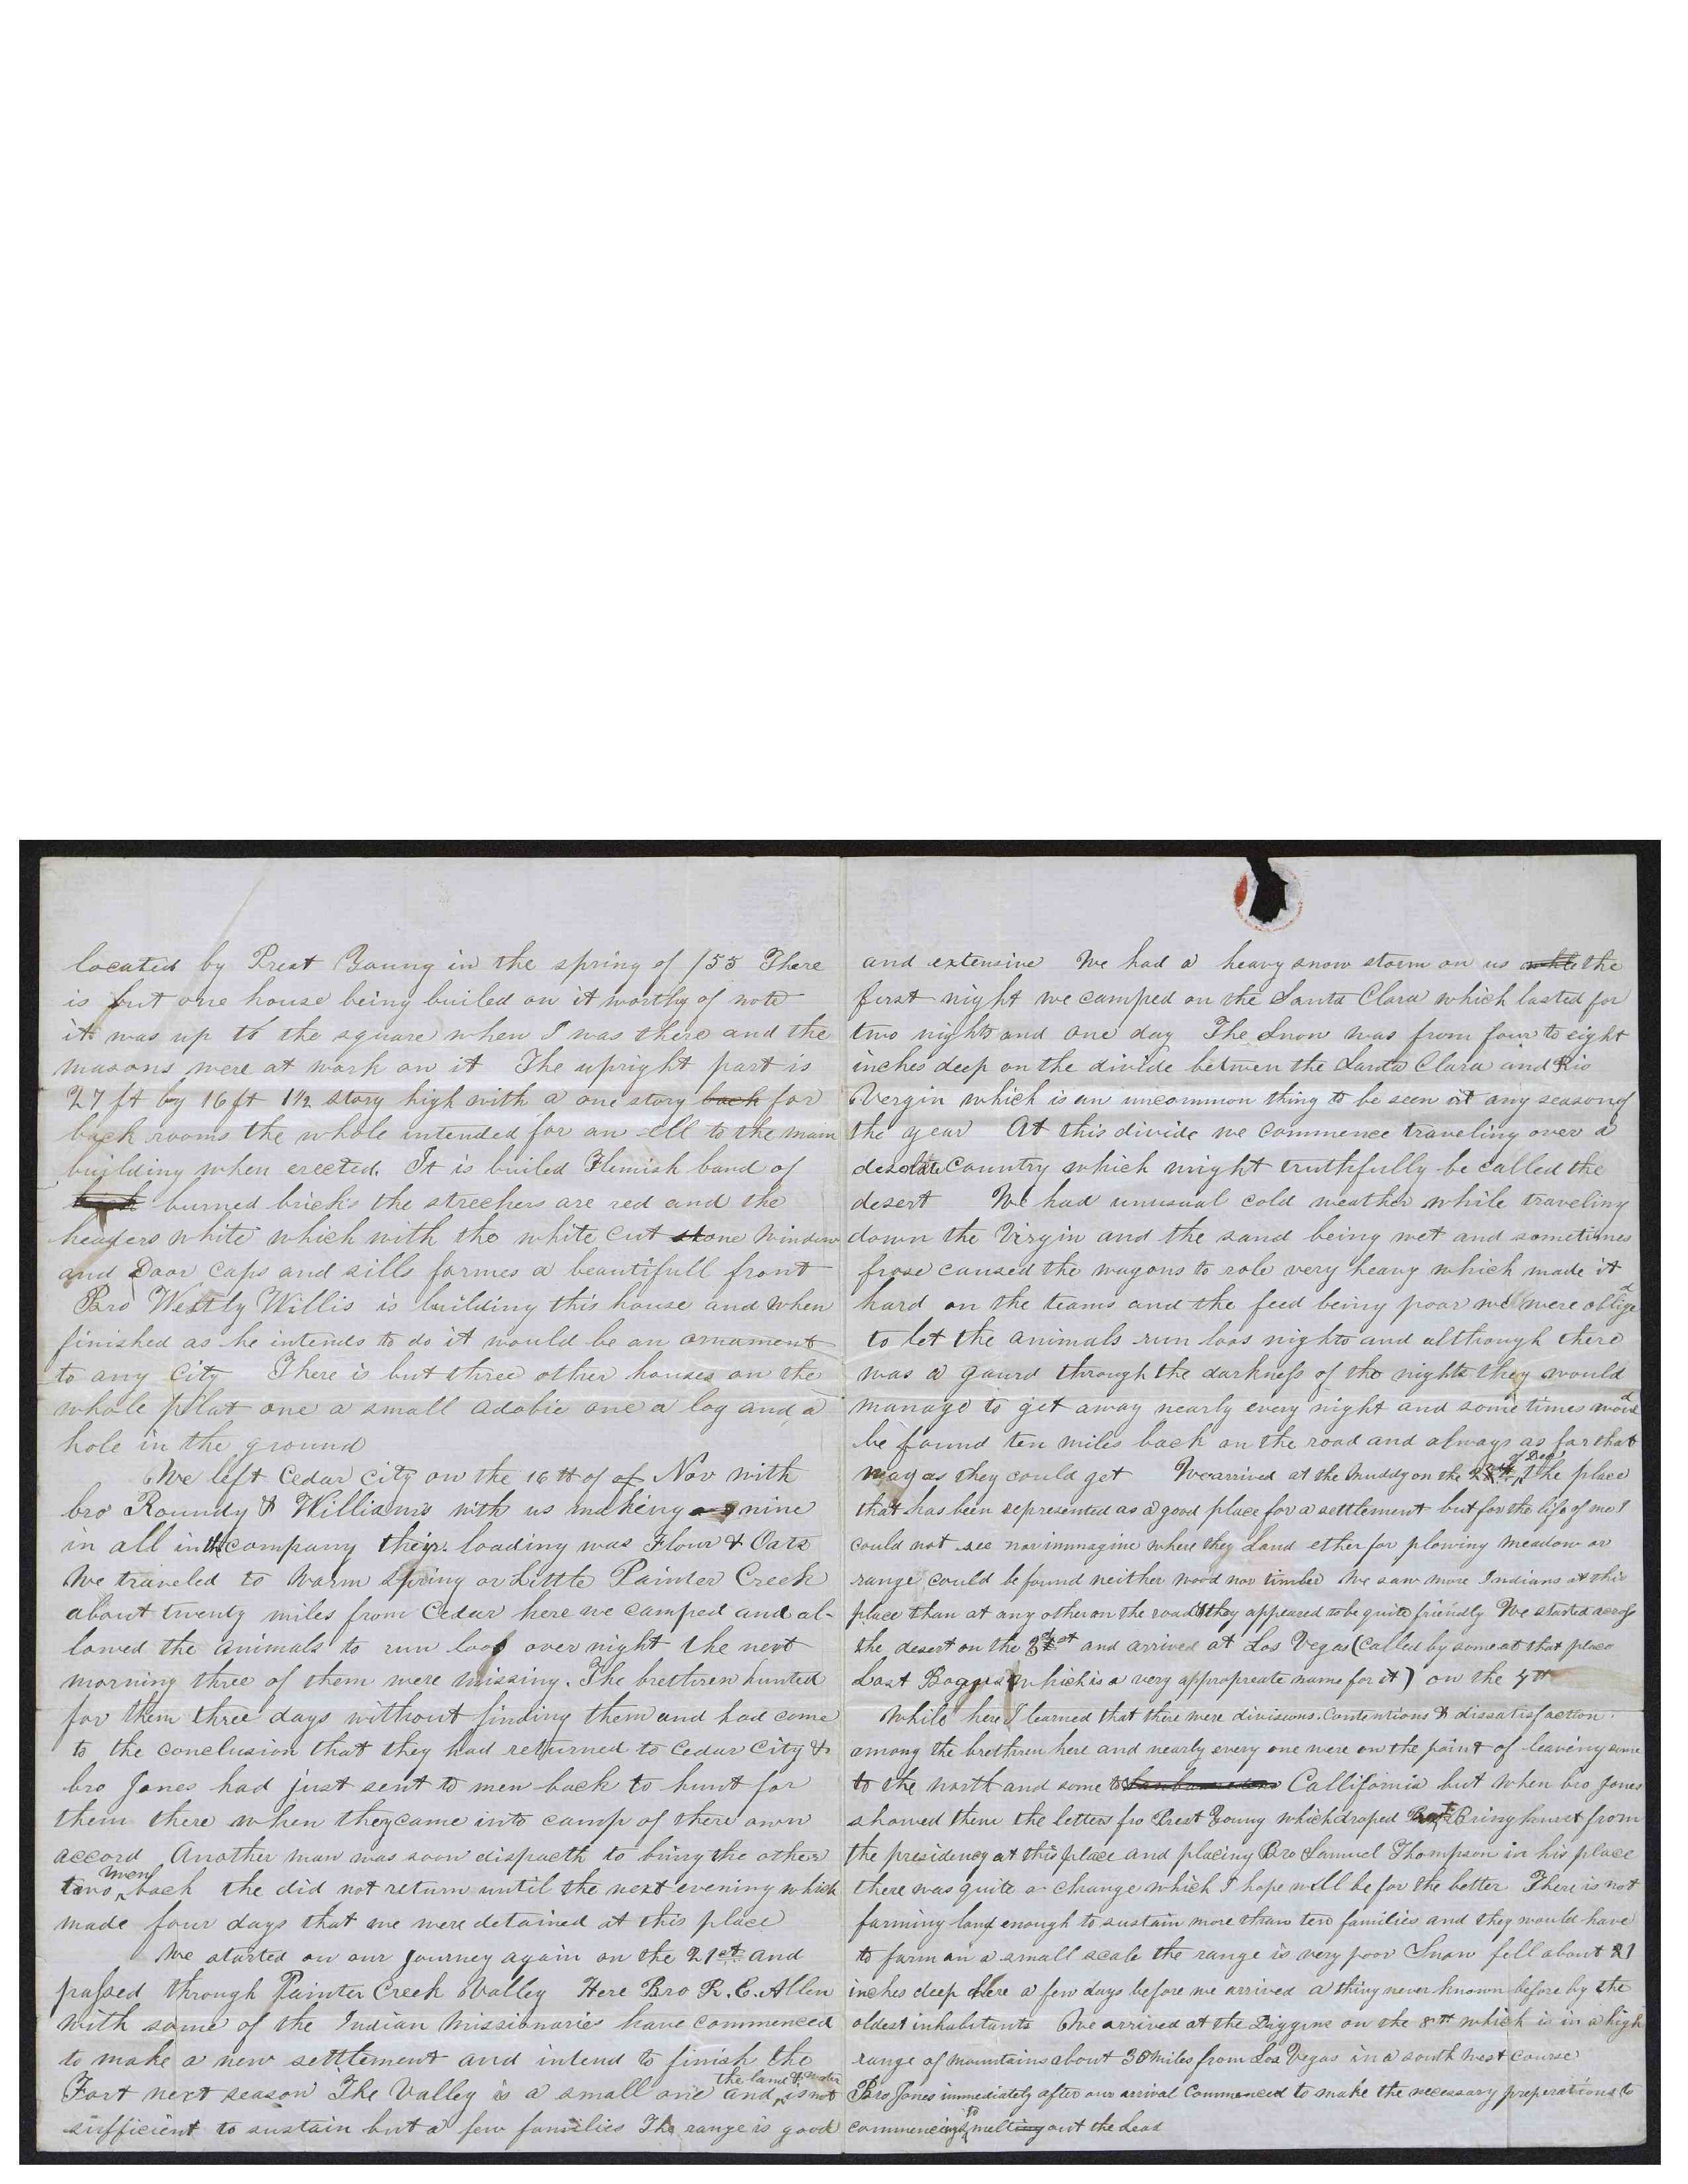 located by Prest Young in the spring of /55 There
is but one house being builed on it worthy of note
it was up to the square when I was there and the
masons were at work on it The upright part is
27 ft by 16 ft 1 1/2 story high with a one story back for
back rooms the whole intended for an ell to the main
building when erected. It is builed Flemish band of
burned bricks the strechers are red and the
headers white which with the white cut stone Window
and Door caps and sills formes a beautifull front
Bro Westly Willis is building this house and when
finished as he intends to do it would be an ornament
to any city There is but three other houses on the
whole plat one a small adobie one a log and a
hole in the ground
We left Cedar city on the 16th of of Nov with
bro Roundy & Williams with us making nine
in all in the company their loading was Flour & Oats
We traveled to Warm Spring or Little Painter Creek
about twenty miles from Cedar here we camped and al-
lowed the animals to run loos over night the next
morning three of them were missing. The brethren hunted
for them three days without finding them and had come
to the conclusion that they had returned to Cedar City &
bro Jones had just sent to men back to hunt for
them there when they came into camp of there own
accord Another man was soon dispacth to bring the other
two men back the did not return until the next evening which
made four days that we were detained at this place
We started on our journey again on the 21st and
passed through Painter Creek Valley Here Bro R. C. Allen
with some of the Indian Missionaries have commenced
to make a new settlement and intend to finish the
Fort next season The Valley is a small one and the land & water is not
sufficient to sustain but a few families The range is good
and extensive We had a heavy snow storm on us while the
first night we camped on the Santa Clara which lasted for
two nights and one day The Snow was from four to eight
inches deep on the divide betwen the Santa Clara and Rio
Vergin which is an uncommon thing to be seen at any season of
the year At this divide we commence traveling over a
desolate Country which might truthfully be called the
desert We had unusual cold weather while traveling
down the Virgin and the sand being wet and sometimes
frose caused the wagons to role very heavy which made it
hard on the teams and the feed being poor we were obliged
to let the animals run loos nights and although there
was a gaurd through the darkness of the nights they would
manage to get away nearly every night and some times would
be found ten miles back on the road and always as far that
way as they could get We arrived at the Muddy on the of Dec the place
that has been represented as a good place for a settlement but for the life of me I
could not see nor inmagine where they Land ether for plowing meadow or
range could be found neither wood nor timber We saw more Indians at this
place than at any other on the road & they appeared to be quite friendly We started across
the desert on the and arrived at Los Vegas (called by some at that place
Last Boggus which is a very appropreate name for it) on the
While here I learned that there were divisions. Contentions & dissatisfaction.
among the brethren here and nearly every one were on the point of leaving some
to the north and some to Callifornia but when bro Jones
showed them the letter fro Prest Young which droped Bringhurst from
the presidency at this place and placing Bro Samuel Thompson in his place
there was quite a change which I hope will be for the better There is not
farming land enough to sustain more than ten families and they would have
to farm on a small scale the range is very poor Snow fell about 21
inches deep here a few days before we arrived a thing never known before by the
oldest inhabitants We arrived at the Diggins on the 8th which is in a high
range of mountains about 30 miles from Los Vegas in a south west course
Bro Jones immediately after our arrival Commenced to make the necessary preperations to
commencing to melting out the Lead